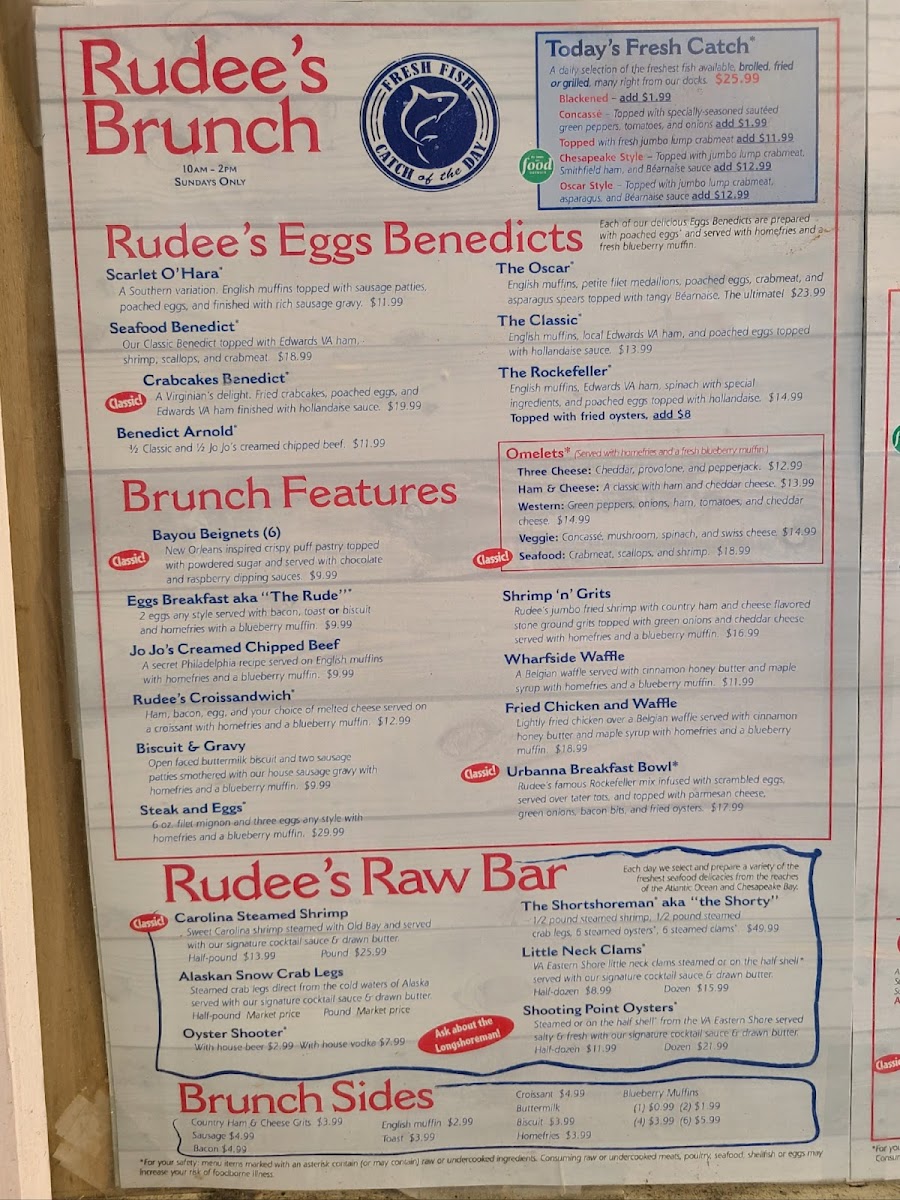 Rudee's
Brunch
10AM - 2PM
SUNDAYS ONLY
FRESH FISH
CATCH of the DAY
Today's Fresh Catch*
A daily selection of the freshest fish available, broiled, fried
or grilled, many right from our docks. $25.99
Blackened – add $1.99
Concassé – Topped with specially-seasoned sautéed
green peppers, tomatoes, and onions add $1.99
Topped with fresh jumbo lump crabmeat add $11.99
Chesapeake Style – Topped with jumbo lump crabmeat,
Smithfield ham, and Béarnaise sauce add $12.99
Oscar Style – Topped with jumbo lump crabmeat,
asparagus, and Béarnaise sauce add $12.99
food
Rudee's Eggs Benedicts
Each of our delicious Eggs Benedicts are prepared
with poached eggs* and served with homefries and a
fresh blueberry muffin.
Scarlet O'Hara*
A Southern variation. English muffins topped with sausage patties,
poached eggs, and finished with rich sausage gravy. $11.99
Seafood Benedict*
Our Classic Benedict topped with Edwards VA ham,
shrimp, scallops, and crabmeat $18.99
Classic!
Crabcakes Benedict*
A Virginian's delight. Fried crabcakes, poached eggs, and
Edwards VA ham finished with hollandaise sauce. $19.99
Benedict Arnold*
½ Classic and ½ Jo Jo's creamed chipped beef. $11.99
The Oscar*
English muffins, petite filet medallions, poached eggs, crabmeat, and
asparagus spears topped with tangy Béarnaise. The ultimate! $23.99
The Classic*
English muffins, local Edwards VA ham, and poached eggs topped
with hollandaise sauce. $13.99
The Rockefeller*
English muffins, Edwards VA ham, spinach with special
ingredients, and poached eggs topped with hollandaise. $14.99
Topped with fried oysters, add $8
Omelets* (Served with homefries and a fresh blueberry muffin.)
Three Cheese: Cheddar, provolone, and pepperjack. $12.99
Ham & Cheese: A classic with ham and cheddar cheese. $13.99
Western: Green peppers, onions, ham, tomatoes, and cheddar
cheese $14.99
Veggie: Concassé, mushroom, spinach, and swiss cheese $14.99
Classic!
Seafood: Crabmeat, scallops, and shrimp. $18.99
Brunch Features
Classic!
Bayou Beignets (6)
New Orleans inspired crispy puff pastry topped
with powdered sugar and served with chocolate
and raspberry dipping sauces. $9.99
Eggs Breakfast aka "The Rude"*
2 eggs any style served with bacon, toast or biscuit
and homefries with a blueberry muffin. $9.99
Jo Jo's Creamed Chipped Beef
A secret Philadelphia recipe served on English muffins
with homefries and a blueberry muffin. $9.99
Rudee's Croissandwich*
Ham, bacon, egg, and your choice of melted cheese served on
a croissant with homefries and a blueberry muffin. $12.99
Biscuit & Gravy
Open faced buttermilk biscuit and two sausage
patties smothered with our house sausage gravy with
homefries and a blueberry muffin. $9.99
Steak and Eggs*
6 oz. filet mignon and three eggs any style with
homefries and a blueberry muffin. $29.99
Shrimp 'n' Grits
Rudee's jumbo fried shrimp with country ham and cheese flavored
stone ground grits topped with green onions and cheddar cheese
served with homefries and a blueberry muffin. $16.99
Wharfside Waffle
A Belgian waffle served with cinnamon honey butter and maple
syrup with homefries and a blueberry muffin. $11.99
Fried Chicken and Waffle
Lightly fried chicken over a Belgian waffle served with cinnamon
honey butter and maple syrup with homefries and a blueberry
muffin. $18.99
Classic!
Urbanna Breakfast Bowl*
Rudee's famous Rockefeller mix infused with scrambled eggs,
served over tater tots, and topped with parmesan cheese,
green onions, bacon bits, and fried oysters. $17.99
Rudee's Raw Bar
Each day we select and prepare a variety of the
freshest seafood delicacies from the reaches
of the Atlantic Ocean and Chesapeake Bay.
Classic!
Carolina Steamed Shrimp
Sweet Carolina shrimp steamed with Old Bay and served
with our signature cocktail sauce & drawn butter.
Half-pound $13.99 Pound $25.99
Alaskan Snow Crab Legs
Steamed crab legs direct from the cold waters of Alaska
served with our signature cocktail sauce & drawn butter.
Half-pound Market price Pound Market price
Oyster Shooter*
With house beer $2.99 With house vodka $7.99
Ask about the
Longshoreman!
The Shortshoreman* aka "the Shorty"
1/2 pound steamed shrimp, 1/2 pound steamed
crab legs, 6 steamed oysters*, 6 steamed clams* $49.99
Little Neck Clams*
VA Eastern Shore little neck clams steamed or on the half shell*
served with our signature cocktail sauce & drawn butter.
Half-dozen $8.99 Dozen $15.99
Shooting Point Oysters*
Steamed or on the half shell* from the VA Eastern Shore served
salty & fresh with our signature cocktail sauce & drawn butter.
Half-dozen $11.99 Dozen $21.99
Brunch Sides
Country Ham & Cheese Grits $3.99
Sausage $4.99
Bacon $4.99
English muffin $2.99
Toast $3.99
Croissant $4.99
Buttermilk
Biscuit $3.99
Homefries $3.99
Blueberry Muffins
(1) $0.99 (2) $1.99
(4) $3.99 (6) $5.99
*For your safety, menu items marked with an asterisk contain (or may contain) raw or undercooked ingredients. Consuming raw or undercooked meats, poultry, seafood, shellfish or eggs may
increase your risk of foodborne illness.